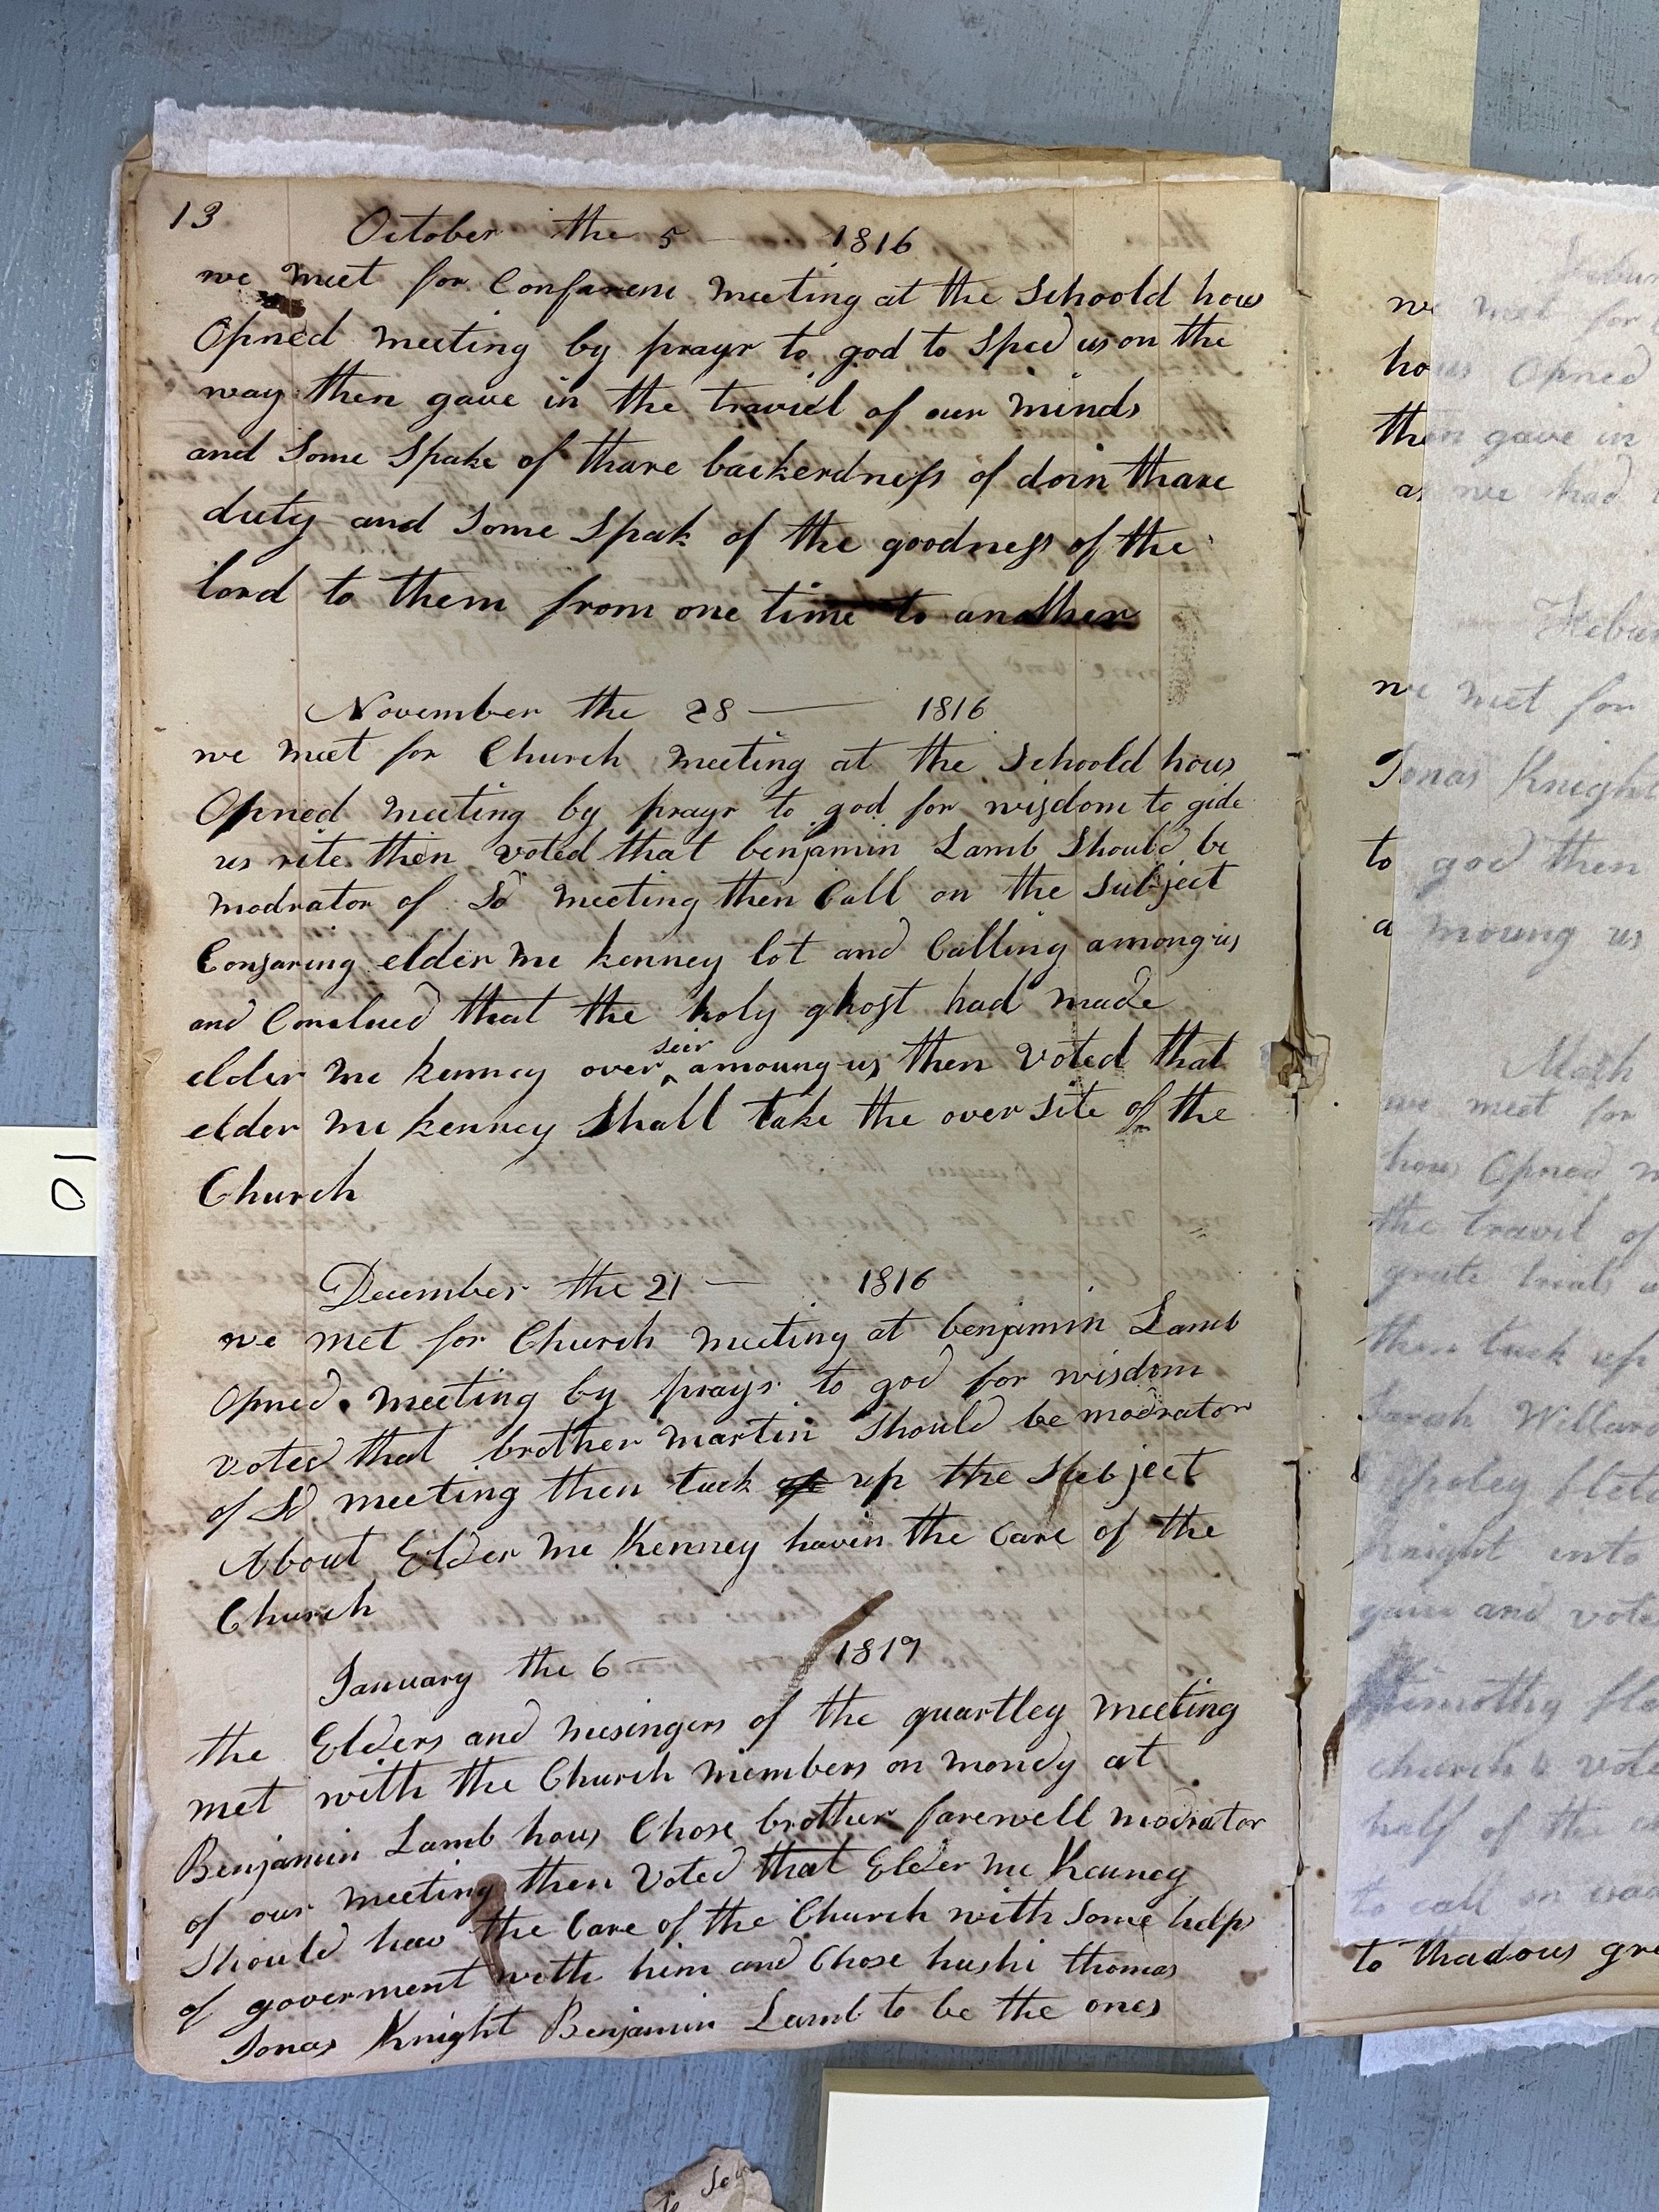 13
October the 5 — 1816
we meet for Conference meeting at the Schoold hous
Opned meeting by prayr to god to sped us on the
way then gave in the traviel of our minds
and Some Spake of thare backerdness of doin thare
duty and Some Spak of the goodness of the
lord to them from one time to another
November the 28 — 1816
we meet for Church meeting at the Schoold hous
Opned meeting by prayr to god for wisdom to gide
us rite then voted that benjamin Lamb Should be
modrator of Sd meeting then Call on the Subject
Consaring elder mc kenney lot and Calling among us
and Conclued that the holy ghost had made
elder mc kenney over seir amoung us then voted that
elder mc kenney Shall take the over Site of the
Church
December the 21 — 1816
we met for Church meeting at benjamin Lamb
Opned meeting by prayr to god for wisdom
voted that brother martin Should be modrator
of Sd meeting then tuck up the Subject
About Elder mc Kenney havin the Care of the
Church
January the 6 — 1817
the Elders and mesingers of the quartley meeting
met with the Church members on mondy at
Benjamin Lamb hous Chose brother farewell modrator
of our meeting then Voted that Elder mc Kenney
Should hav the Care of the Church with Some helps
of goverment with him and Chose hushi thomas
Jonas Knight Benjamin Lamb to be the ones
10
we meet for
hous Opned
then gave in
as we had
we meet for
Jonas Knight
to god then
a moung us
March
we meet for
hous Opned
the travil of
grate trials
then tuck up
Sarah Willard
Knight into
gain and vote
timothy
church & vote
half of the
to call on
to thadous